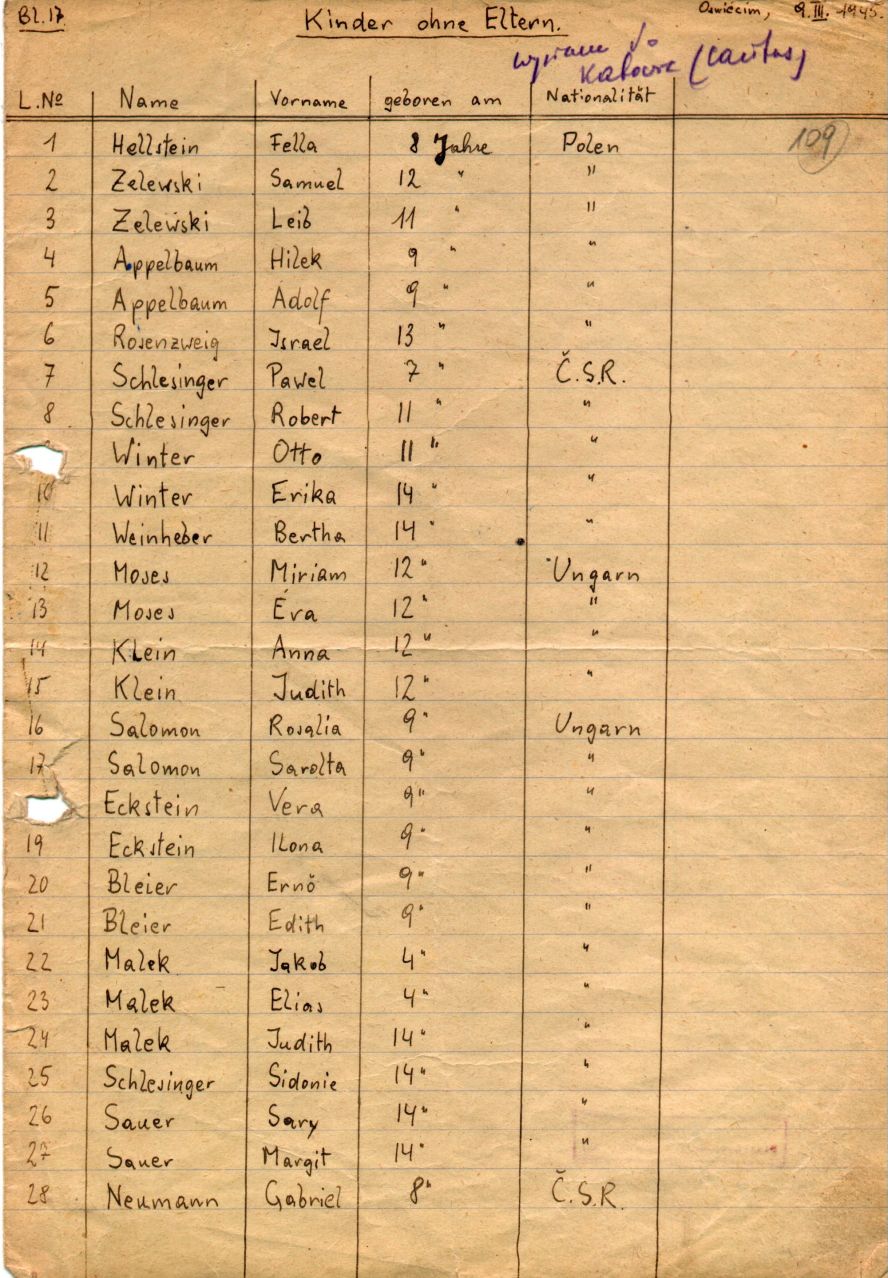 Bl.17 Kinder ohne Eltern. Oswiecim, 9.III.1945.
Katowic (Caritas)
L.No Name Vorname geboren am Nationalität
1 Hellstein Fella 8 Jahre Polen 109
2 Zelewski Samuel 12 " "
3 Zelewski Leib 11 " "
4 Appelbaum Hilek 9 " "
5 Appelbaum Adolf 9 " "
6 Rosenzweig Israel 13 " "
7 Schlesinger Pawel 7 " Č.S.R.
8 Schlesinger Robert 11 " "
Winter Otto 11 " "
10 Winter Erika 14 " "
11 Weinheber Bertha 14 " "
12 Moses Miriam 12 " Ungarn
13 Moses Éva 12 " "
14 Klein Anna 12 " "
15 Klein Judith 12 " "
16 Salomon Rosalia 9 " Ungarn
17 Salomon Sarolta 9 " "
Eckstein Vera 9 " "
19 Eckstein Ilona 9 " "
20 Bleier Ernö 9 " "
21 Bleier Edith 9 " "
22 Malek Jakob 4 " "
23 Malek Elias 4 " "
24 Malek Judith 14 " "
25 Schlesinger Sidonie 14 " "
26 Sauer Sary 14 " "
27 Sauer Margit 14 " "
28 Neumann Gabriel 8 " Č.S.R.